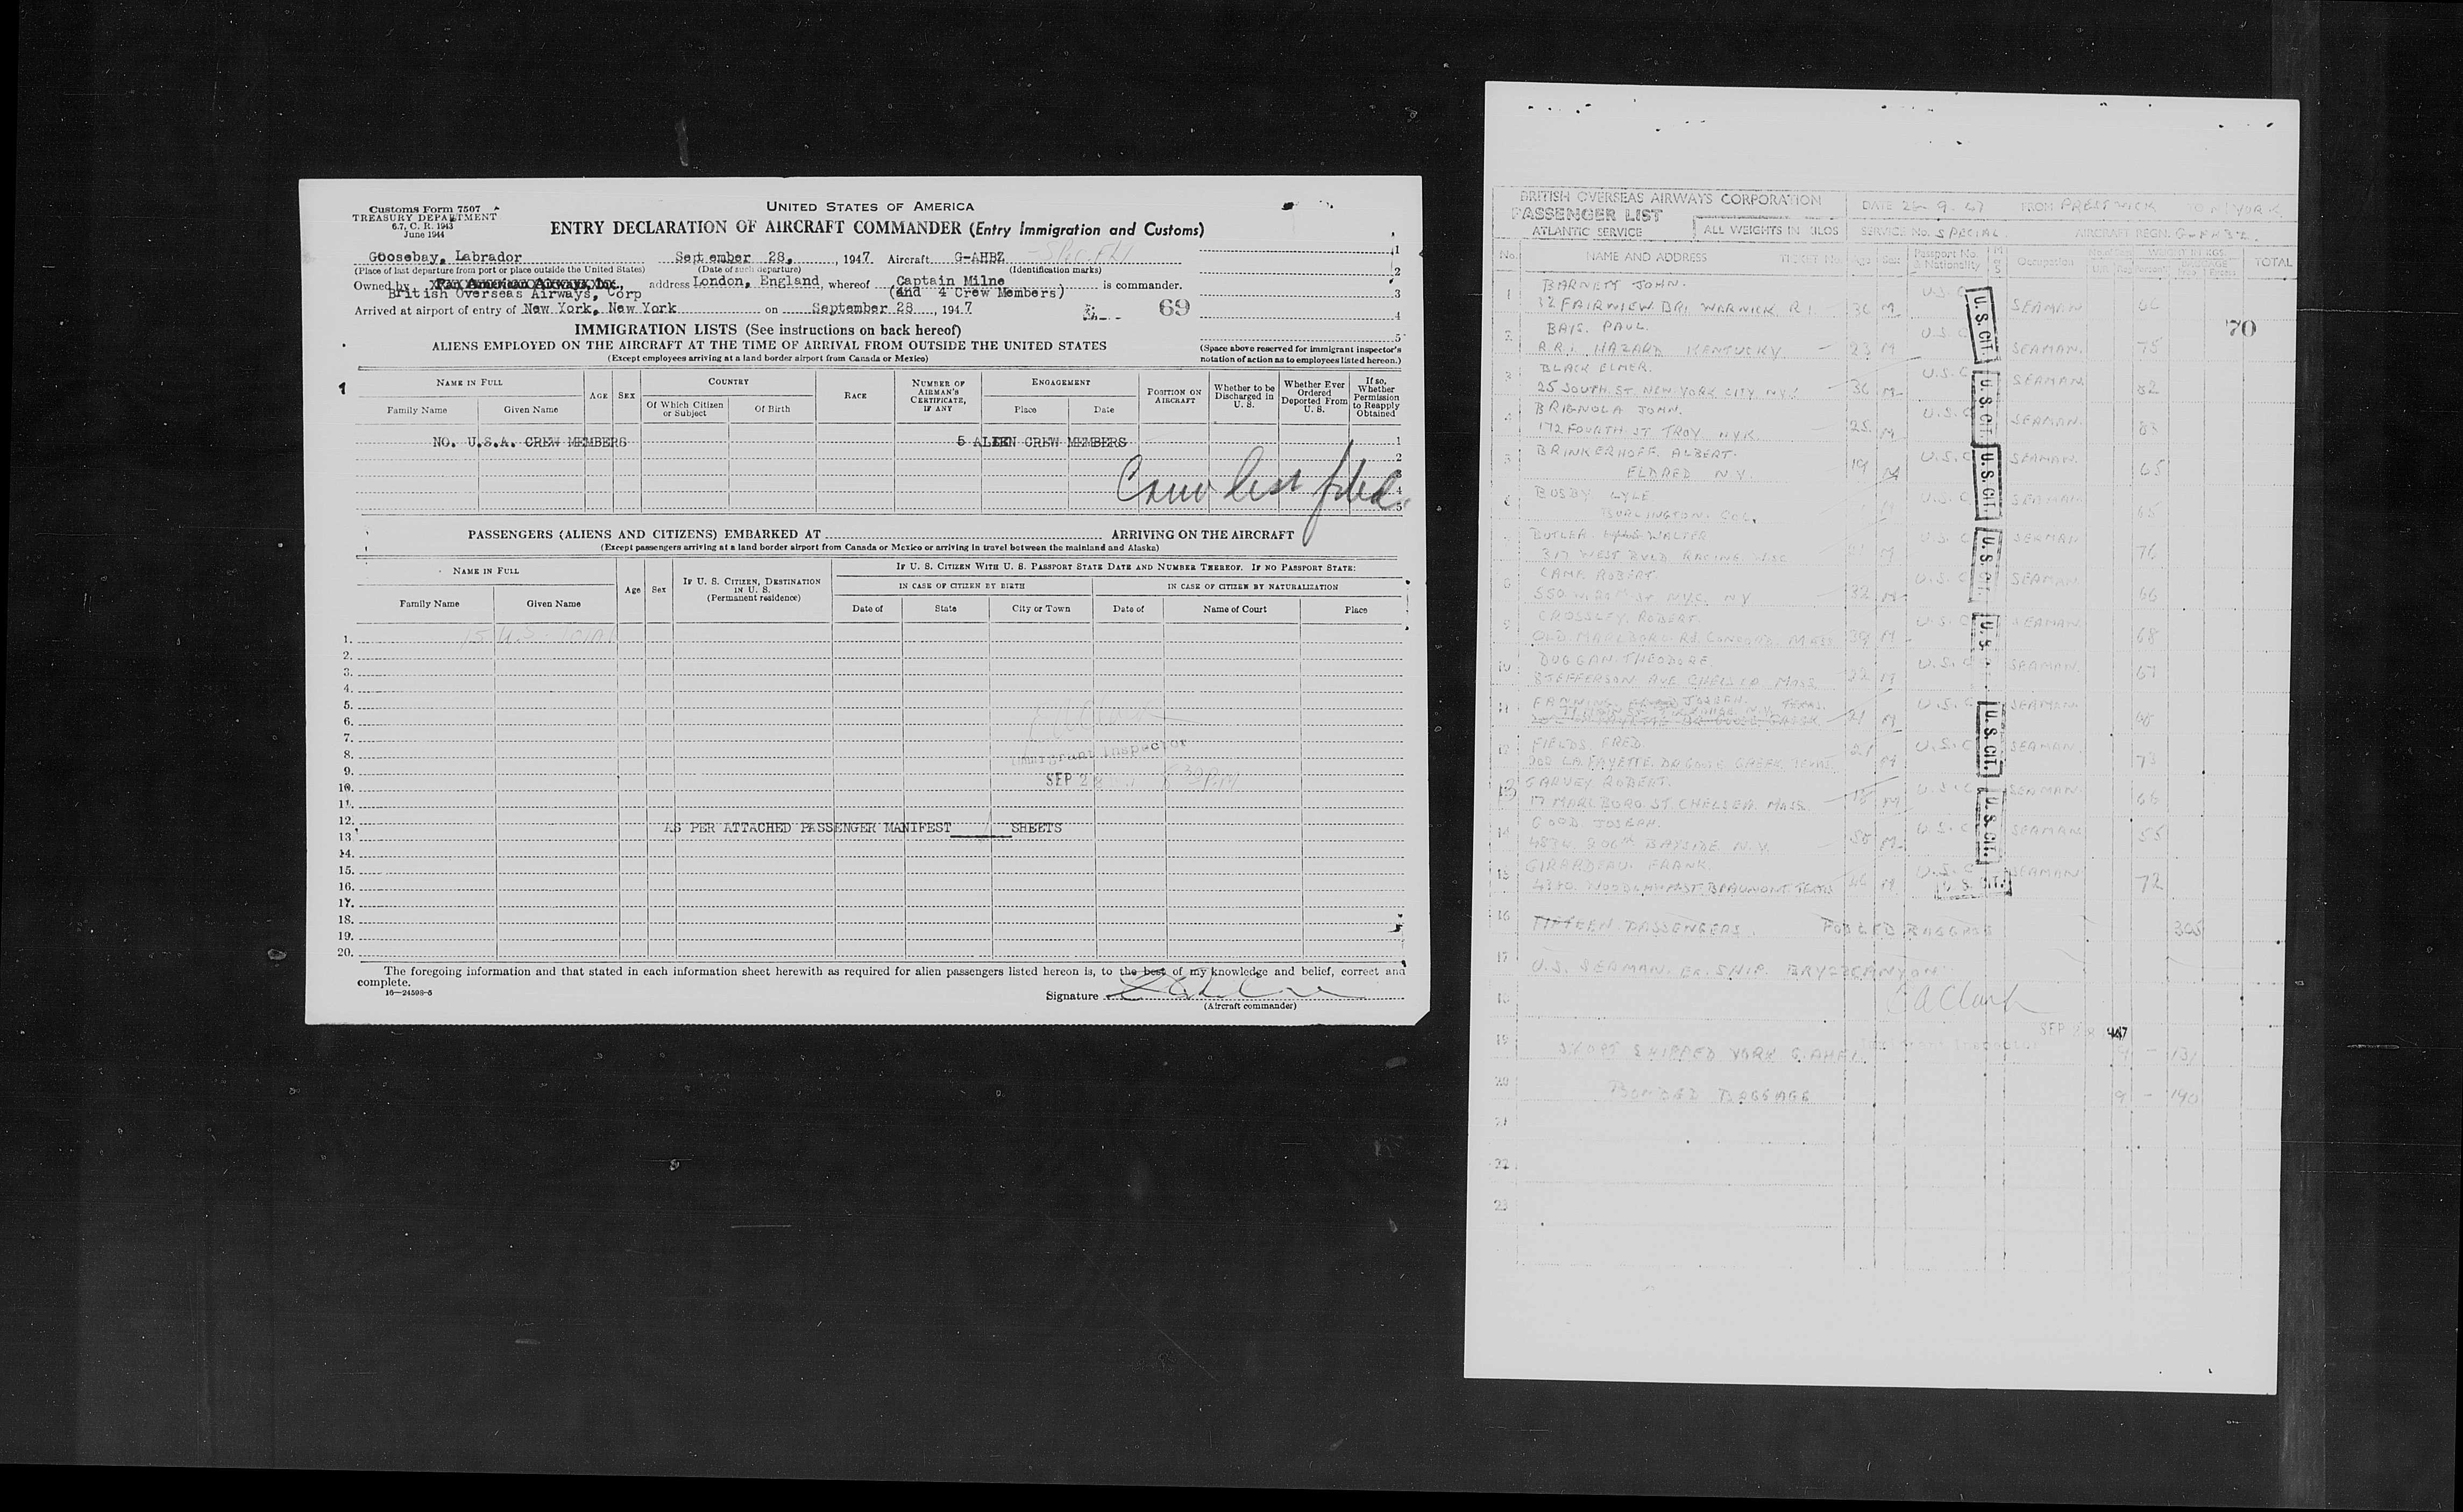 Customs Form 7507
TREASURY DEPARTMENT
6.7, C. R. 1943
June 1944
UNITED STATES OF AMERICA
ENTRY DECLARATION OF AIRCRAFT COMMANDER (Entry Immigration and Customs)
Goosebay, Labrador September 28, , 1947 Aircraft G-AHBZ
(Place of last departure from port or place outside the United States) (Date of such departure) (Identification marks)
Owned by Pan American Airways, Inc., address London, England, whereof Captain Milne is commander.
British Overseas Airways, Corp (and 4 Crew Members)
Arrived at airport of entry of New York, New York on September 28 , 1947 69
1
2
3
4
5
(Space above reserved for immigrant inspector's notation of action as to employees listed hereon.)
IMMIGRATION LISTS (See instructions on back hereof)
ALIENS EMPLOYED ON THE AIRCRAFT AT THE TIME OF ARRIVAL FROM OUTSIDE THE UNITED STATES
(Except employees arriving at a land border airport from Canada or Mexico)
1
NAME IN FULL AGE SEX COUNTRY RACE NUMBER OF AIRMAN'S CERTIFICATE, IF ANY ENGAGEMENT POSITION ON AIRCRAFT Whether to be Discharged in U. S. Whether Ever Ordered Deported From U. S. If so, Whether Permission to Reapply Obtained
Family Name Given Name Of Which Citizen or Subject Of Birth Place Date
NO. U.S.A. CREW MEMBERS 5 ALIEN CREW MEMBERS 1
2
3
4
5
Crew list filed
PASSENGERS (ALIENS AND CITIZENS) EMBARKED AT ARRIVING ON THE AIRCRAFT
(Except passengers arriving at a land border airport from Canada or Mexico or arriving in travel between the mainland and Alaska)
NAME IN FULL Age Sex IF U. S. CITIZEN, DESTINATION IN U. S. (Permanent residence) IF U. S. CITIZEN WITH U. S. PASSPORT STATE DATE AND NUMBER THEREOF. IF NO PASSPORT STATE:
IN CASE OF CITIZEN BY BIRTH IN CASE OF CITIZEN BY NATURALIZATION
Family Name Given Name Date of State City or Town Date of Name of Court Place
1. 15 U.S.
2.
3.
4.
5.
6.
7.
8. Immigrant Inspector
9. SEP 28
10.
11.
12. AS PER ATTACHED PASSENGER MANIFEST SHEETS
13.
14.
15.
16.
17.
18.
19.
20.
The foregoing information and that stated in each information sheet herewith as required for alien passengers listed hereon is, to the best of my knowledge and belief, correct and
complete.
16—24598-5
Signature
(Aircraft commander)
BRITISH OVERSEAS AIRWAYS CORPORATION DATE 9. 47 FROM PRESTWICK TO N/YORK
PASSENGER LIST
ATLANTIC SERVICE ALL WEIGHTS IN KILOS SERVICE No. SPECIAL AIRCRAFT REGN. G-AHBZ.
No. NAME AND ADDRESS TICKET No. Age Sex Passport No. & Nationality Occupation TOTAL
1 BARNETT JOHN. U.S.C
32 FAIRVIEW DR. WARWICK. R.I. 36 M SEAMAN 66
70
2 PAUL. U.S.C
R.R.1 HAZARD KENTUCKY 23 M SEAMAN. 75
3 BLACK ELMER. U.S.C
25 SOUTH. ST NEW-YORK CITY N.Y. 36 M SEAMAN. 82
4 BRIGNOLA JOHN. U.S.C
172 FOURTH ST TROY N.Y.K. 25 M SEAMAN. 83
5 BRINKERHOFF. ALBERT. U.S.C SEAMAN.
ELDRED N.Y. 19 M 65
6 BUSBY LYLE U.S.C SEAMAN
BURLINGTON. COL. M 65
BUTLER WALTER U.S.C SEAMAN
317 WEST BVLD RACINE. WISC 21 M 76
8 CAMP. ROBERT. U.S.C SEAMAN
550 W. ST N.Y.C. N.Y 32 M 66
9 CROSSLEY. ROBERT. U.S.C SEAMAN
OLD MARLBORO. RD. CONCORD. MASS 39 M 68
10 DUGGAN. THEODORE. U.S.C SEAMAN.
JEFFERSON AVE CHELSEA MASS 22 M 67
11 FANNING JOSEPH. U.S.C SEAMAN.
21 M
12 FIELDS. FRED. U.S.C SEAMAN
202 LAFAYETTE. DR GOOSE CREEK. TEXAS. 21 M 73
13 GARVEY ROBERT. U.S.C SEAMAN.
17 MARLBORO. ST. CHELSEA. MASS. 18 M 66
14 GOOD JOSEPH. U.S.C SEAMAN
BAYSIDE N.Y. M 55
15 GIRARDEAU. FRANK U.S.C SEAMAN
BEAUMONT TEXAS 46 M 72
U.S. CIT.
U.S. CIT.
U.S. CIT.
U.S. CIT.
U.S.
U.S. CIT.
U.S. CIT.
U.S. CIT.
16 FIFTEEN PASSENGERS. POOLED BAGGAGE 305
17 U.S. SEAMAN. EX. SHIP. BRYCE CANYON
18 C A Clark
SEP 28 1947
19 SHORT SHIPPED YORK 9 - 131
20 BONDED BAGGAGE 9 - 190
21
22
23